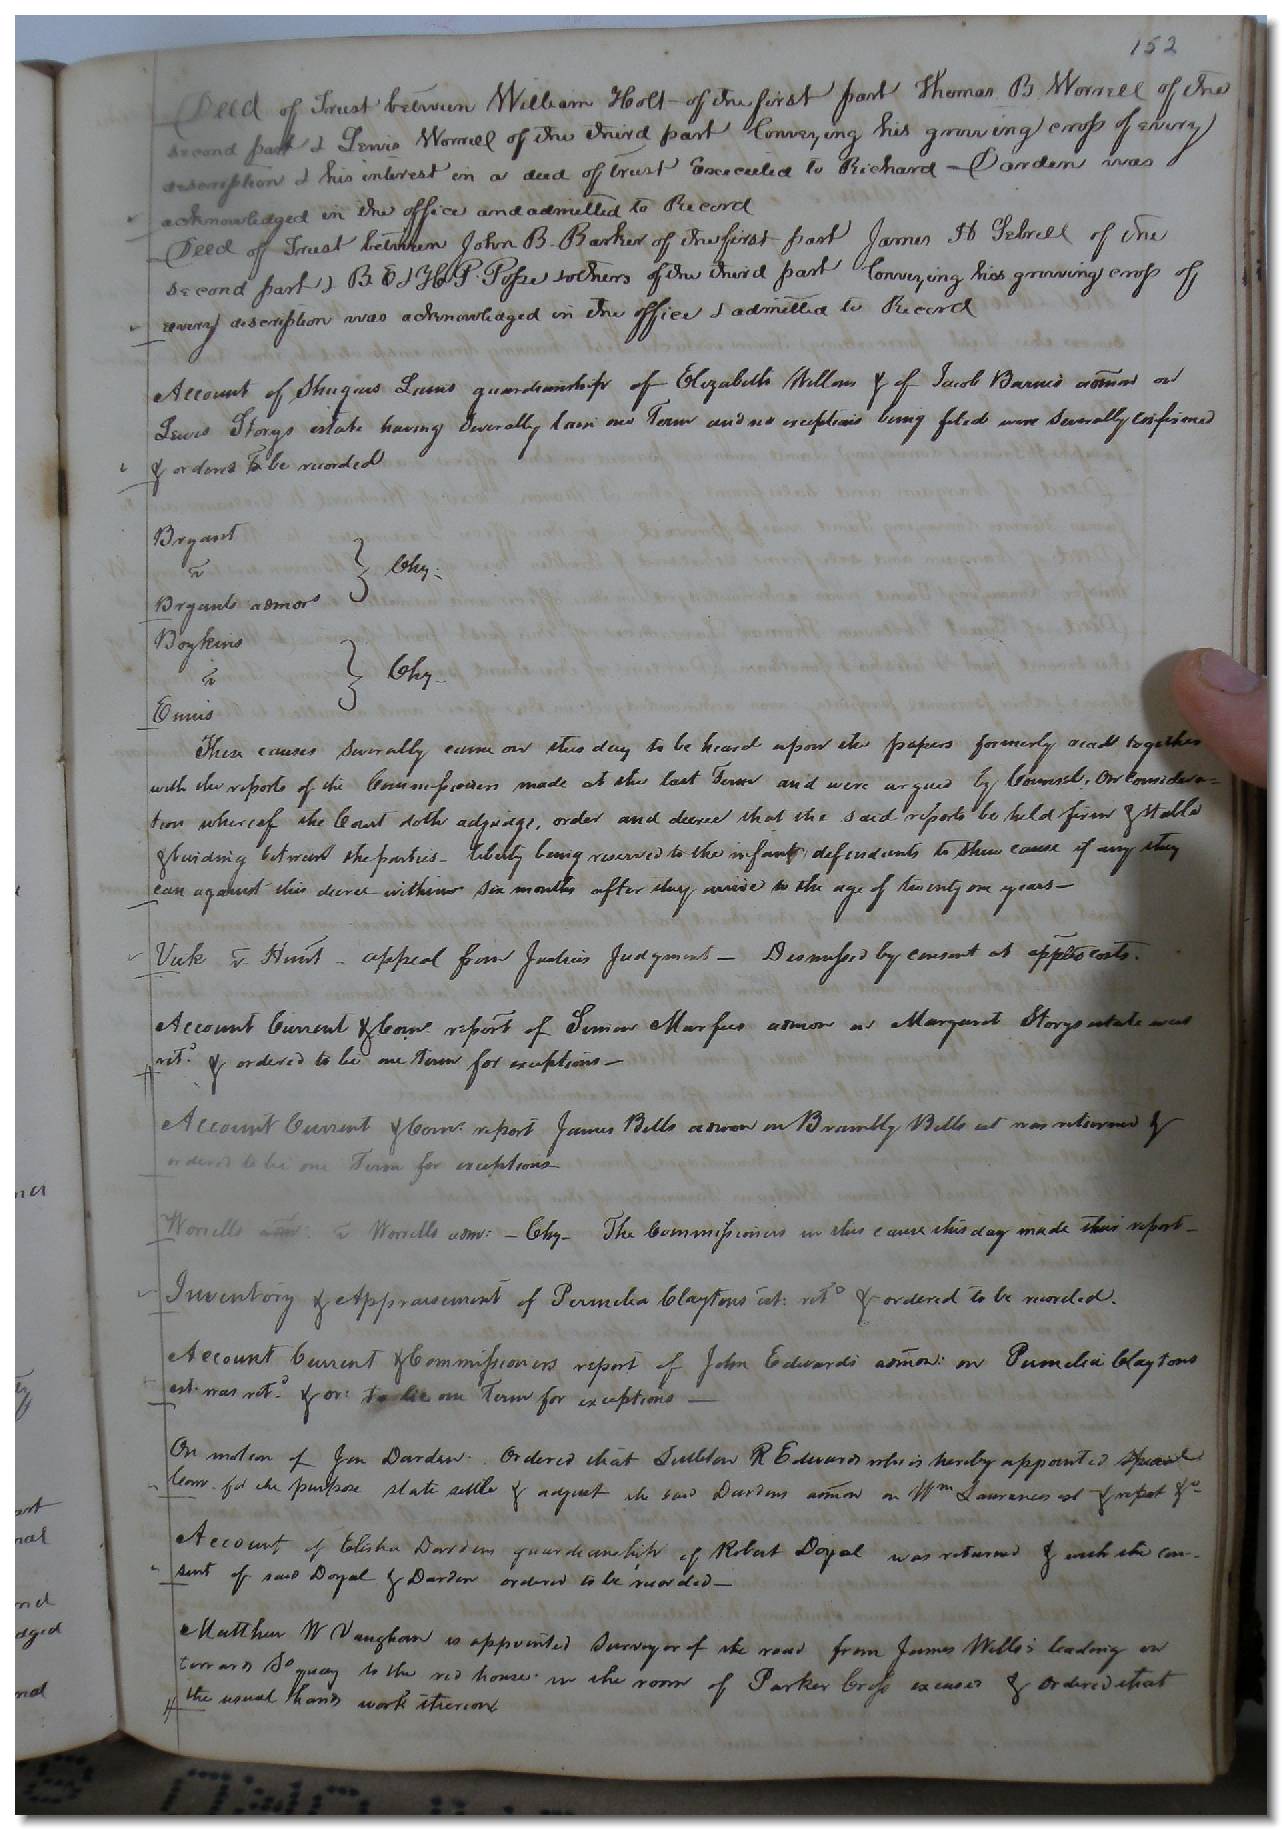 152
Deed of Trust between William Holt of the first part Thomas B Worrell of the
second part & Lewis Worrell of the third part Conveying his growing crop of every
description & his interest in a deed of trust Executed to Richard Darden was
acknowledged in the office and admitted to Record
Deed of Trust between John B. Barker of the first part James H Sebrell of the
second part & B & J H P. Pope & others of the third part Conveying his growing crop of
every description was acknowledged in the office & admitted to Record
Account of Lewis guardianship of Elizabeth & of Jacob Barnes admor on
Lewis Storys estate having Severally lain one Term and no exceptions being filed were Severally confirmed
& orderd to be recorded
Bryant
v
Bryants admors
} Chy:
Boykins
v
Ennis
} Chy
These causes severally came on this day to be heard upon the papers formerly read together
with the reports of the Commissioners made at the last Term and were argued by Counsel. On considera=
tion whereof the Court doth adjudge, order and decree that the said reports be held firm & stable
& binding between the parties - liberty being reserved to the infant defendants to shew cause if any they
can against this decree within six months after they arrive to the age of twenty one years -
Vick v Hunt - appeal from Justices Judgment - Dismissed by consent at costs.
Account Current & Com: report of Simon Murfees admor on Margaret Storys estate was
retd & ordered to lie one Term for exceptions -
Account Current & Com: report James Bells admor on Brambly Bells est was returned &
orderd to lie one Term for exceptions
Worrells adm: v Worrells adm: - Chy - The Commissioners in this cause this day made their report -
Inventory & Appraisement of Permelia Claytons est: retd & ordered to be recorded.
Account Current & Commissioners report of John Edwards admor: on Permelia Claytons
est. was retd & or: to lie one Term for exceptions -
On motion of Jon Darden. Ordered that R Edwards who is hereby appointed special
Com. for the purpose state settle & adjust the said Dardens admor on Wm Laurences est & report &c
Account of Elisha Dardens guardianship of Robert Doyal was returned & with the con-
sent of said Doyal & Darden ordered to be recorded -
Matthew W Vaughan is appointed Surveyor of the road from James Wells's leading on
towards to the red house in the room of Parker Cross excused & ordered that
the usual hands work thereon